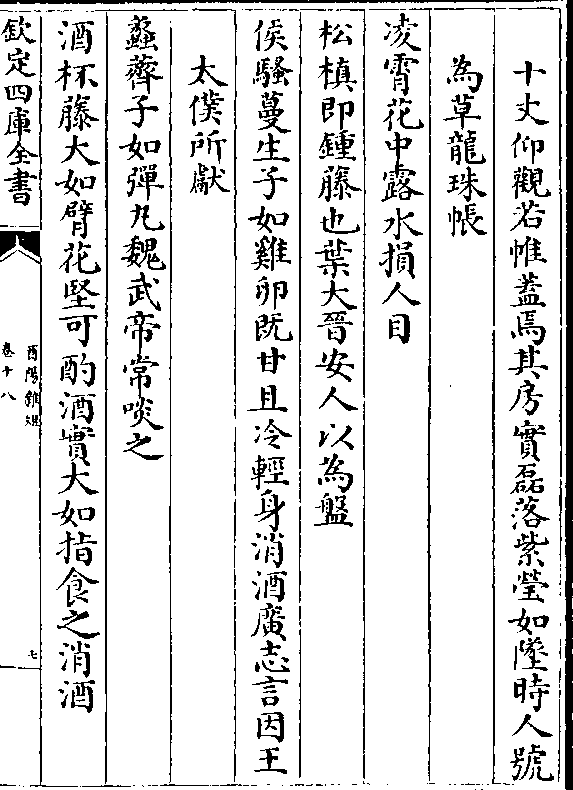 十丈仰觀若帷蓋焉其房實磊落紫瑩如墜時人號
為草龍珠帳
凌霄花中露水損人目
松楨即鍾藤也葉大晉安人以為盤
侯騷蔓生子如雞卵既甘且冷輕身消酒廣志言因王
太僕所獻
蠡薺子如彈丸魏武帝常啖之
酒杯藤大如臂花堅可酌酒實大如指食之消酒
欽定四庫全書
酉陽雜俎
卷十八
七